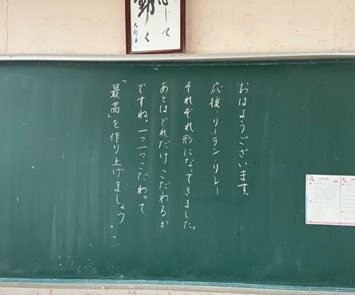 おはようございます。
応援、リーラン、リレー
それぞれ形になってきました。
あとはどれだけこだわるか
ですね。一つ一つこだわって
「最高」を作り上げましょう